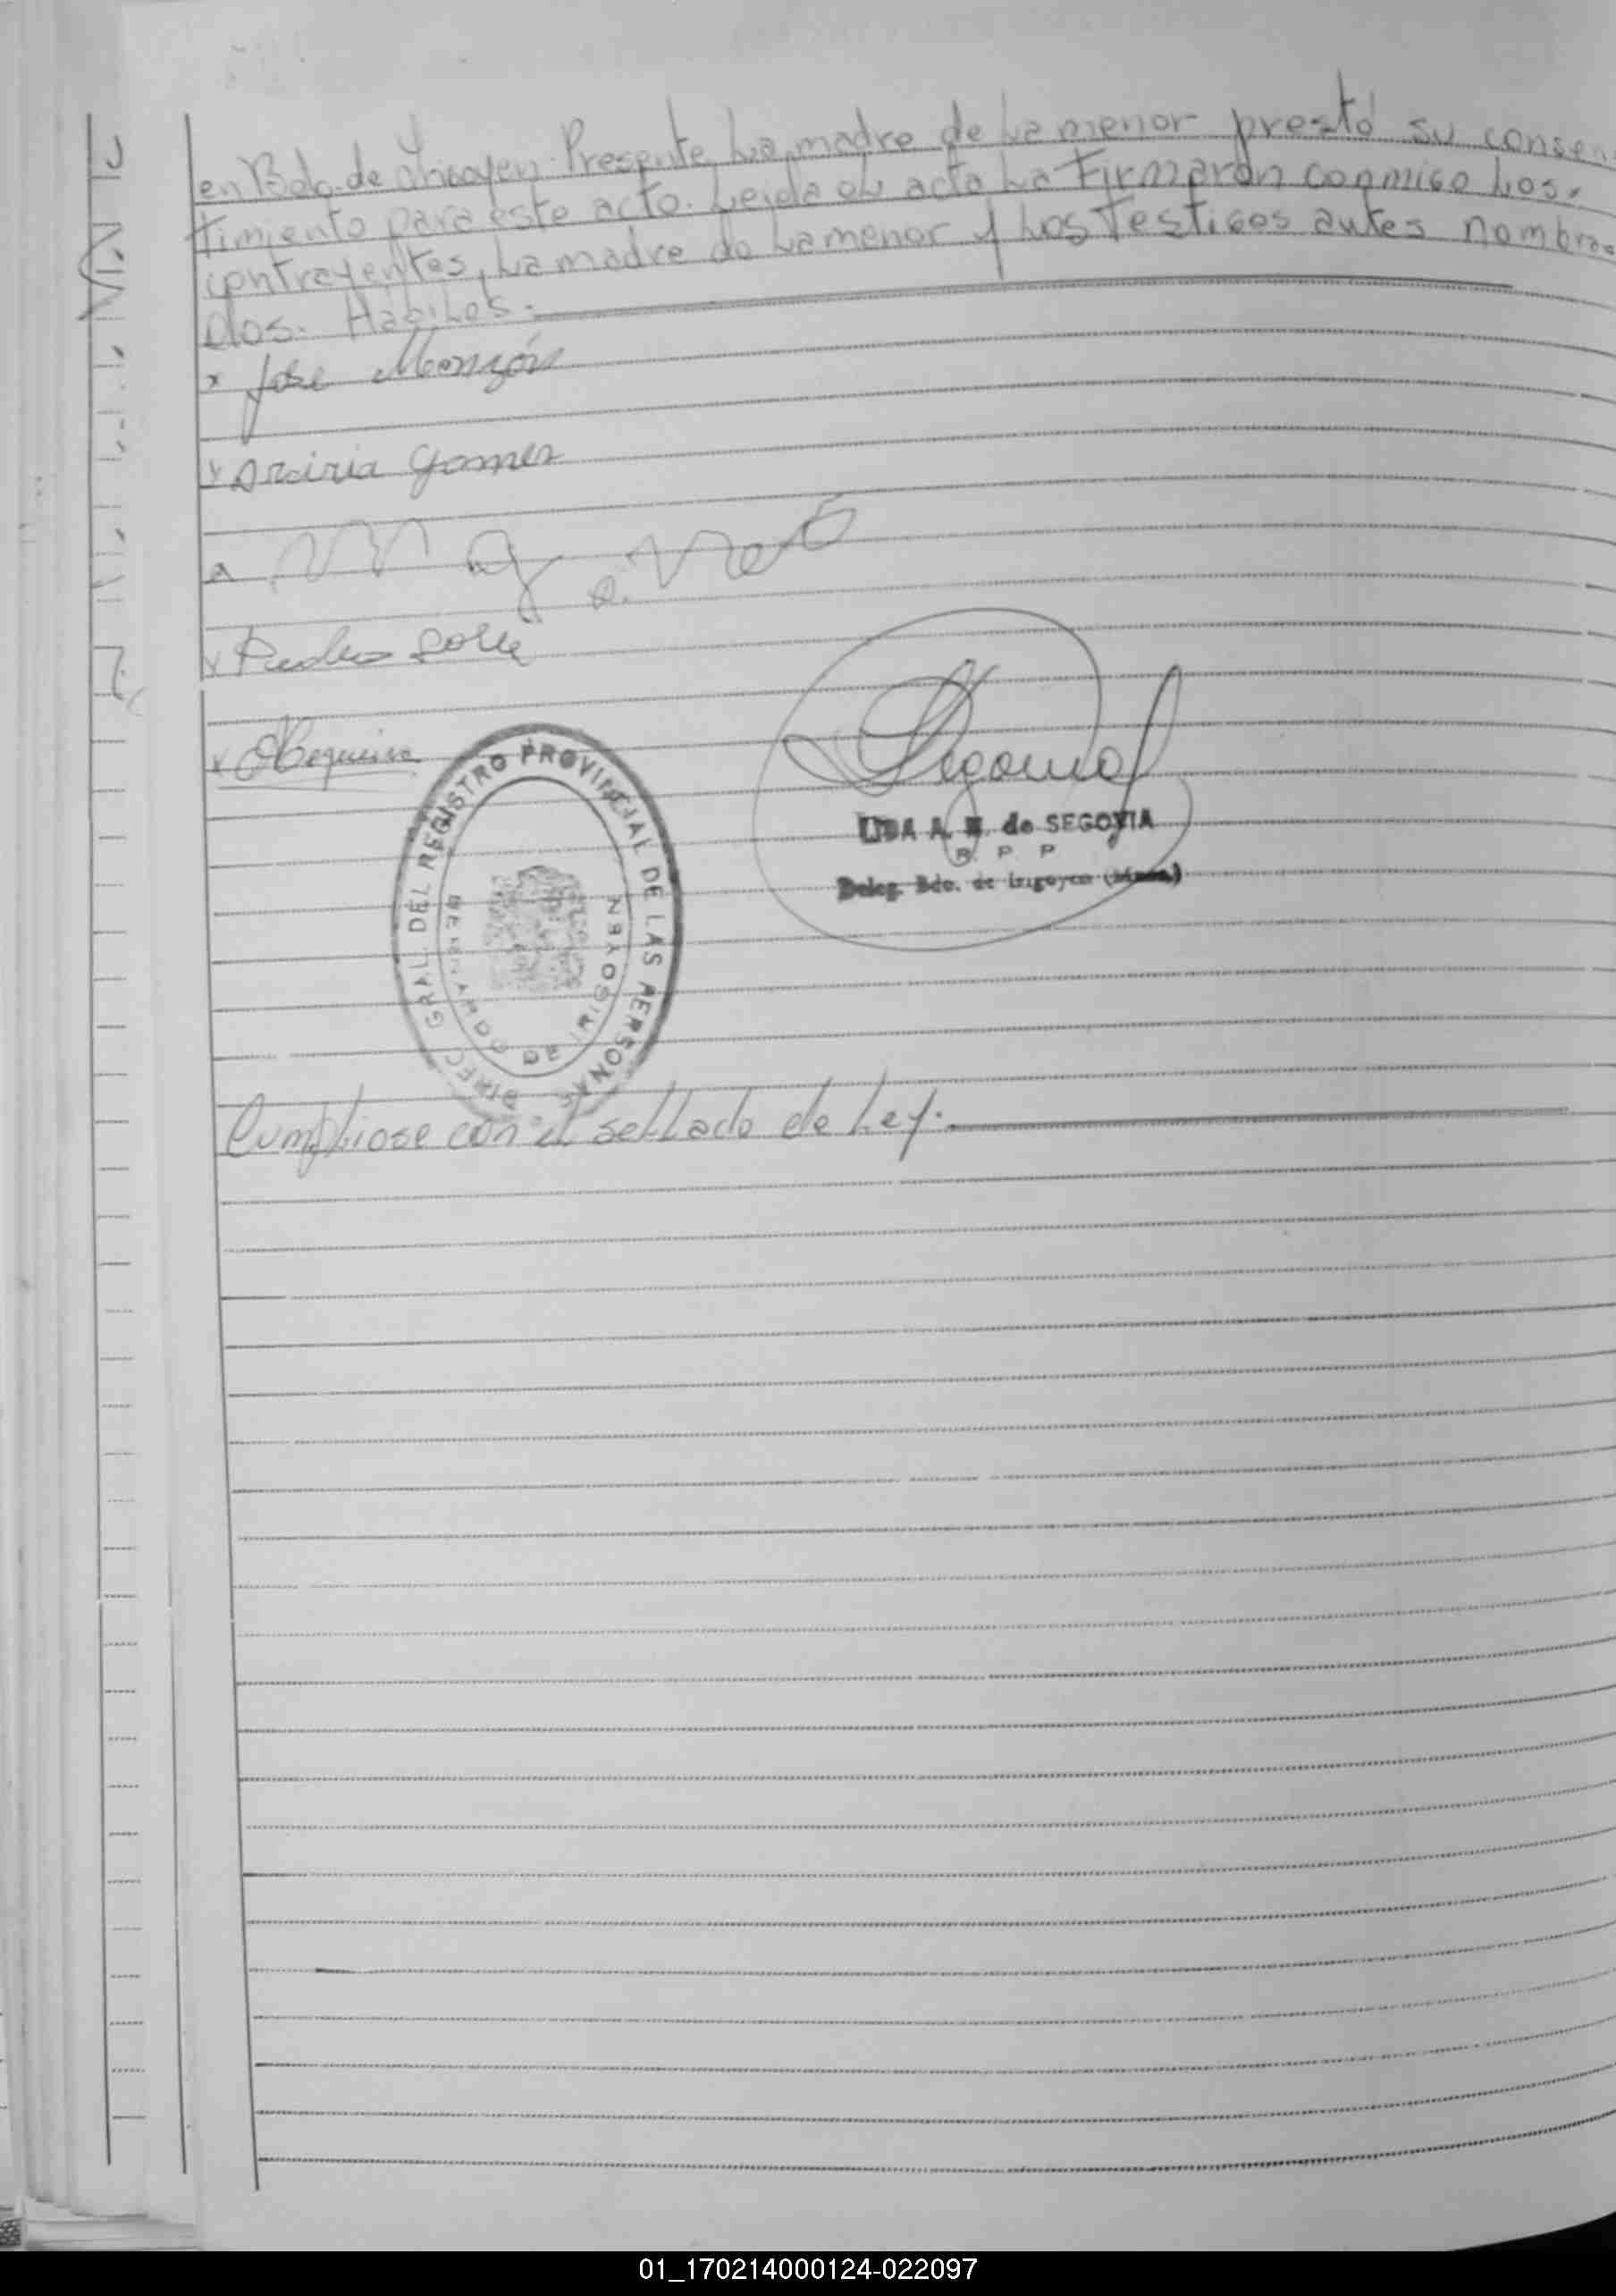 en Bdo. de Irigoyen. Presente La madre de La menor prestó su consen
timiento para este acto. Leida el acta La Firmaron conmigo Los
contrayentes, La madre de La menor y Los Testigos antes nombra
dos. Hábiles.
x José Monzón
x gomes
x Pedro
x
Segovia
LIDA A. de SEGOVIA
R. P. P
Deleg. Bdo. de Irigoyen (Mnes.)
DIRECC GRAL DEL REGISTRO PROVINCIAL DE LAS PERSONAS
BERNARDO DE IRIGOYEN
Cumpliose con el sellado de Ley.
01_170214000124-022097